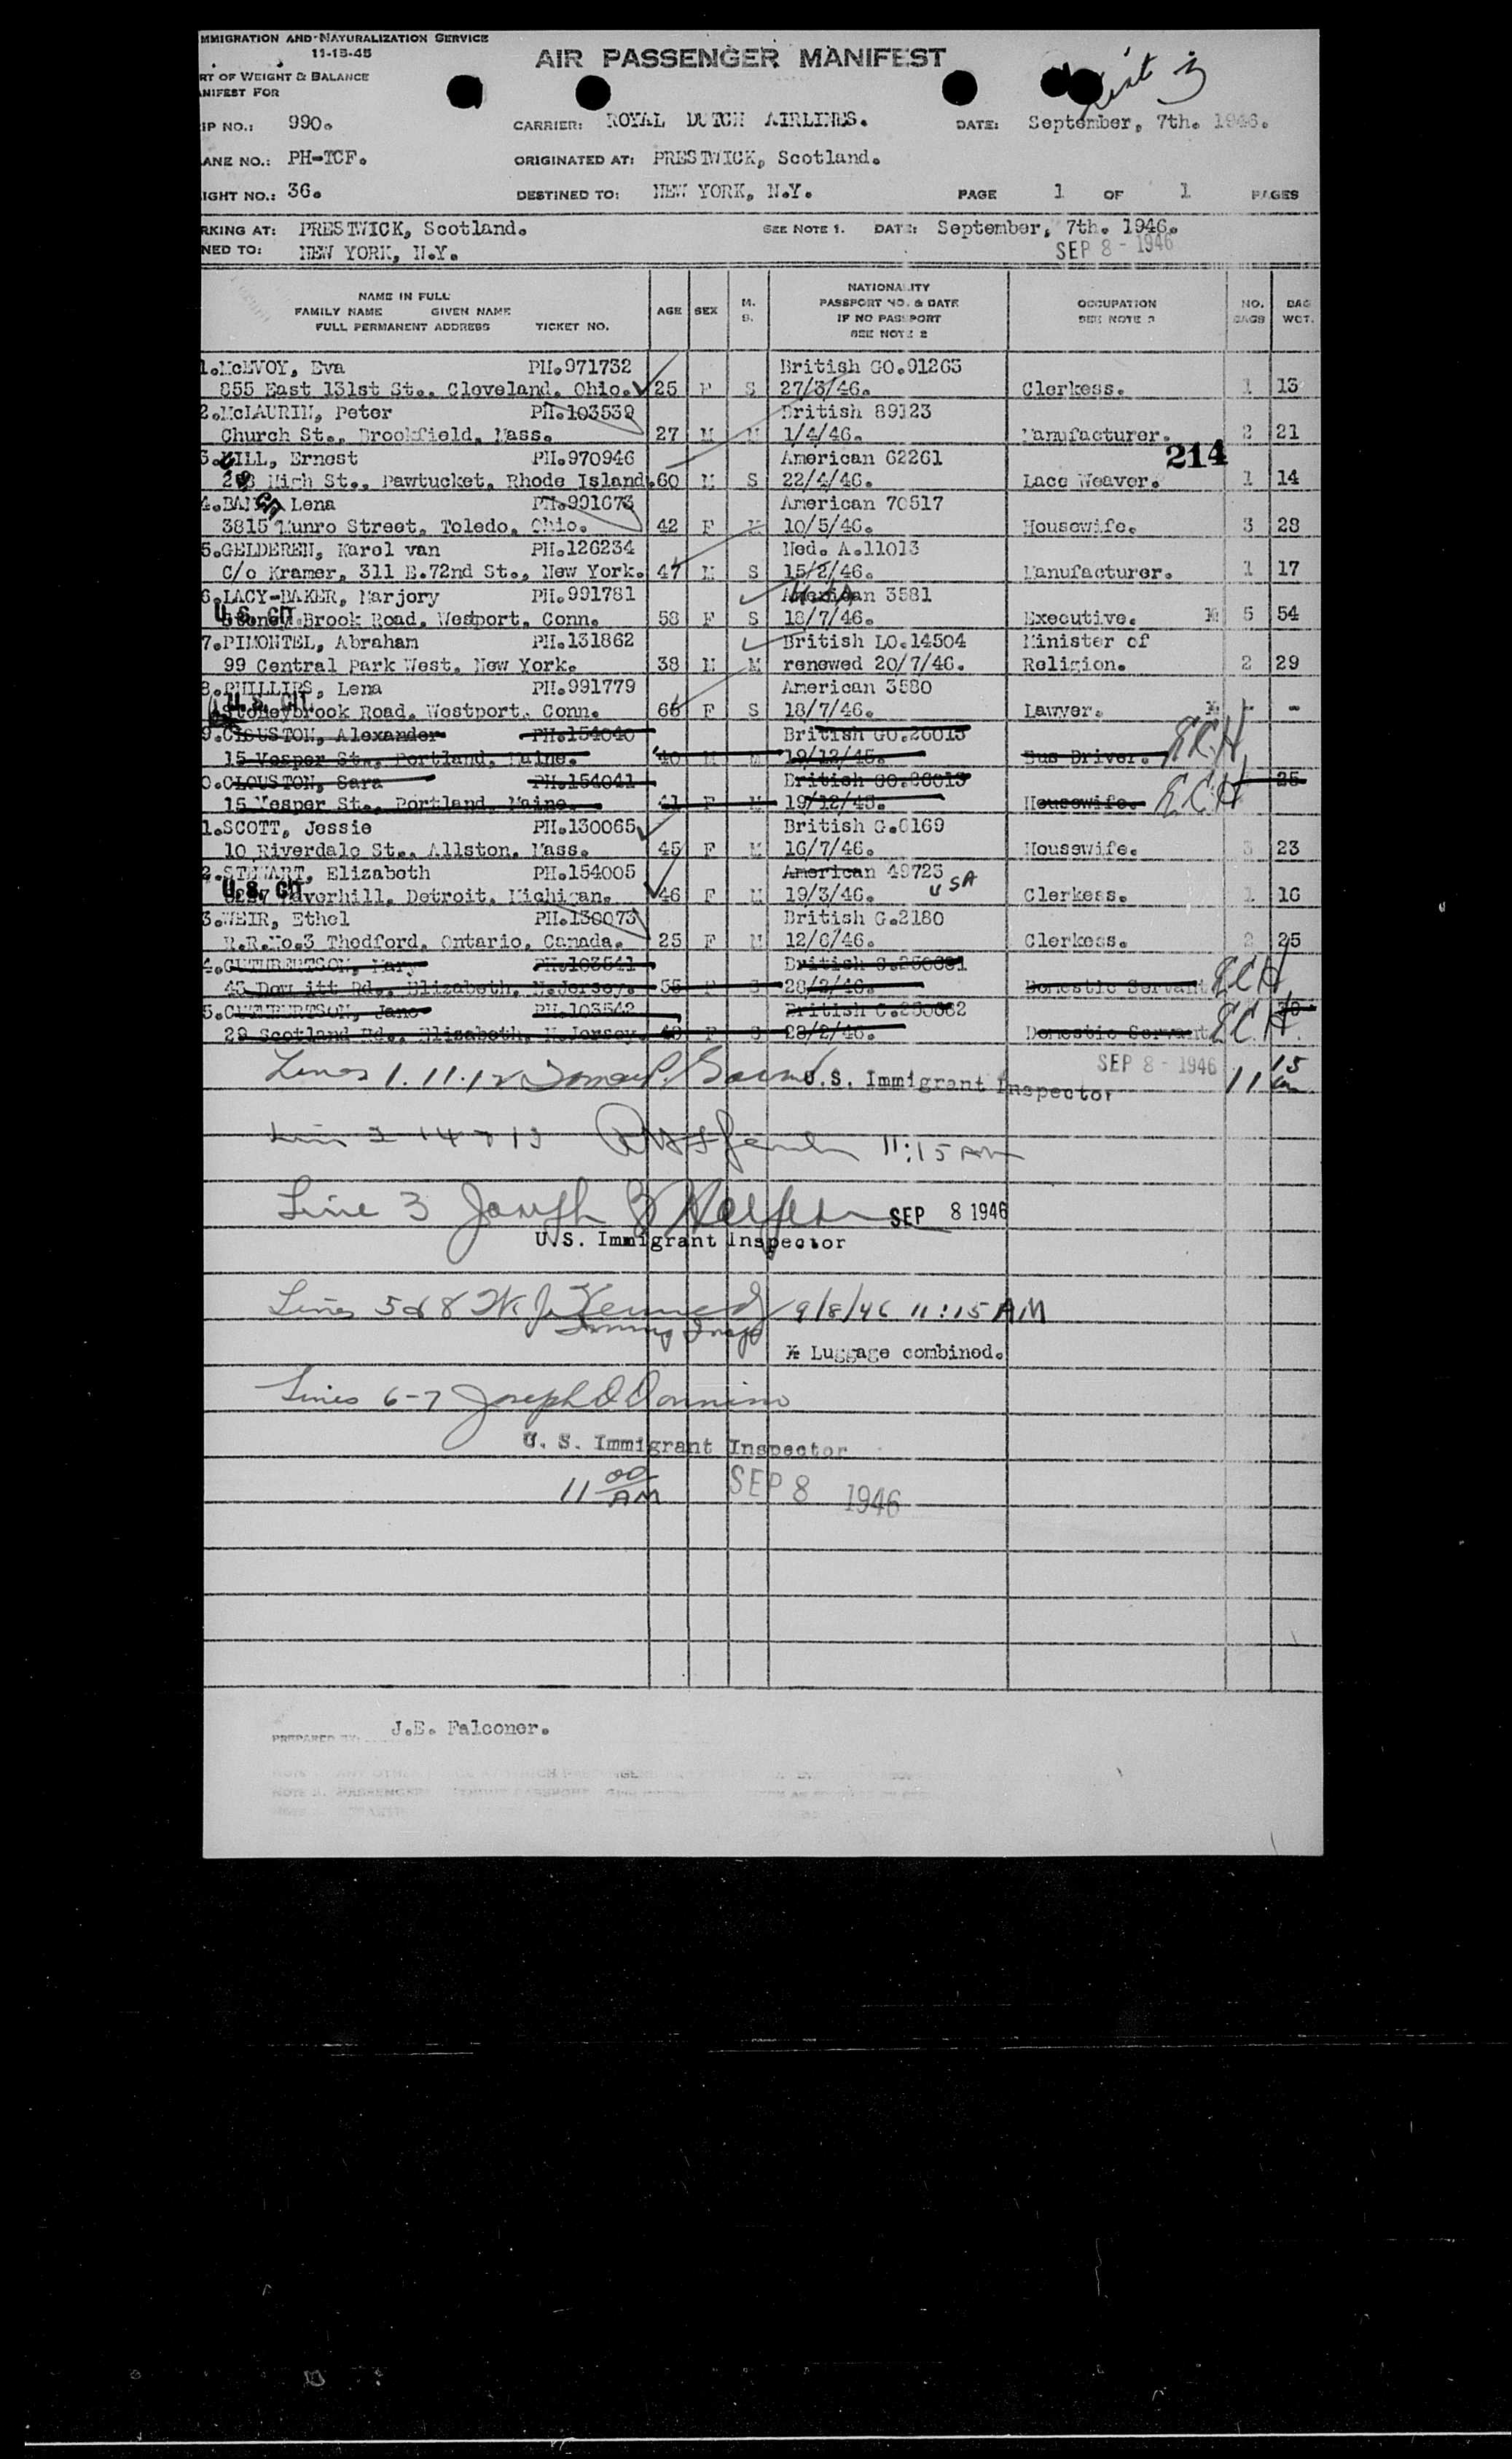 MMIGRATION AND NATURALIZATION SERVICE
11-15-45
AIR PASSENGER MANIFEST
List 3
RT OF WEIGHT & BALANCE
NIFEST FOR
IP NO.: 990.
CARRIER: ROYAL DUTCH AIRLINES.
DATE: September, 7th. 1946.
ANE NO.: PH-TCF.
ORIGINATED AT: PRESTWICK, Scotland.
IGHT NO.: 36.
DESTINED TO: NEW YORK, N.Y.
PAGE 1 OF 1 PAGES
RKING AT: PRESTWICK, Scotland. SEE NOTE 1. DATE: September, 7th. 1946.
NED TO: NEW YORK, N.Y. SEP 8 - 1946
NAME IN FULL
FAMILY NAME GIVEN NAME
FULL PERMANENT ADDRESS TICKET NO.
AGE SEX M. S.
NATIONALITY
PASSPORT NO. & DATE
IF NO PASSPORT
SEE NOTE 2
OCCUPATION
SEE NOTE 3
NO. BAGS
BAG WGT.
1.McEVOY, Eva PH.971732 British GO.91263
855 East 131st St., Cleveland, Ohio. 25 F S 27/3/46. Clerkess. 1 13
2.McLAURIN, Peter PH.103539 British 89123
Church St., Brookfield, Mass. 27 M M 1/4/46. Manufacturer. 2 21
214
3. ILL, Ernest PH.970946 American 62261
High St., Pawtucket, Rhode Island. 60 M S 22/4/46. Lace Weaver. 1 14
4.BAN Lena PH.991673 American 70517
3815 Munro Street, Toledo, Ohio. 42 F M 10/5/46. Housewife. 3 28
5.GELDEREN, Karel van PH.126234 Ned. A.11013
C/o Kramer, 311 E.72nd St., New York. 47 M S 15/2/46. Manufacturer. 1 17
6.LACY-BAKER, Marjory PH.991781 American 3581
U.S. CIT.
Brook Road, Westport, Conn. 58 F S 18/7/46. Executive. 5 54
7.PIMONTEL, Abraham PH.131862 British LO.14504 Minister of
99 Central Park West, New York. 38 M M renewed 20/7/46. Religion. 2 29
8.PHILLIPS, Lena PH.991779 American 3580
U.S. CIT.
Stoneybrook Road, Westport, Conn. 66 F S 18/7/46. Lawyer. - -
9.CLOUSTON, Alexander PH.154040 British GO.26013
15 Vesper St., Portland, Maine. 40 M M 19/12/45. Bus Driver. E.C.H.
0.CLOUSTON, Sara PH.154041 British GO.26013
15 Vesper St., Portland, Maine. 41 F M 19/12/45. Housewife. E.C.H. 25
1.SCOTT, Jessie PH.130065 British G.6169
10 Riverdale St., Allston, Mass. 45 F M 16/7/46. Housewife. 3 23
2.STEWART, Elizabeth PH.154005 American 49723
U.S. CIT.
USA
averhill, Detroit, Michigan. 46 F M 19/3/46. Clerkess. 1 16
3.WEIR, Ethel PH.130073 British G.2180
R.R.No.3 Thedford, Ontario, Canada. 25 F M 12/6/46. Clerkess. 2 25
4.CUTHBERTSON, Mary PH.103541
Elizabeth, N.Jersey. 55 F S 28/2/46. Domestic Servant E.C.H.
5.CUTHBERTSON, Jane PH.103542
29 Scotland Rd., Elizabeth, N.Jersey. F S 28/2/46. Domestic Servant E.C.H.
Lines 1. 11. 12 U.S. Immigrant Inspector SEP 8 - 1946 11 15 am
11:15 AM
Line 3 Joseph SEP 8 1946
U.S. Immigrant Inspector
Lines 5 & 8 W. J. Kennedy 9/8/46 11:15 AM
Immig Insp
Luggage combined.
Lines 6-7 Joseph
U. S. Immigrant Inspector
11 00 AM SEP 8 1946
PREPARED BY: J.E. Falconer.